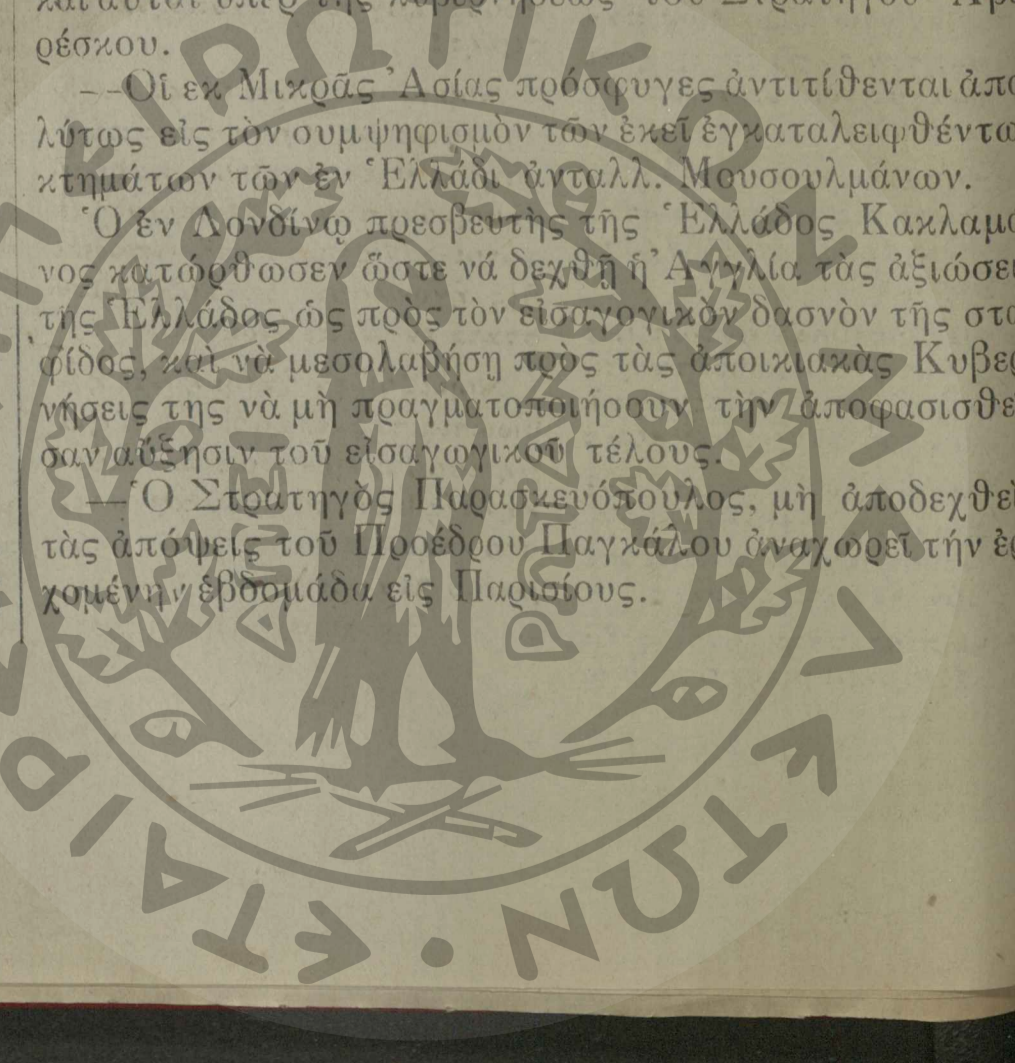 ρέσκου.
--Οἱ εκ Μικρᾶς Ἀσίας πρόσφυγες ἀντιτίθενται ἀπο
λύτως εἰς τὸν συμψηφισμὸν τῶν ἐκεῖ ἐγκαταλειφθέντω
κτημάτων τῶν ἐν Ἑλλάδι ἀνταλλ. Μουσουλμάνων.
Ὁ ἐν Λονδίνῳ πρεσβευτὴς τῆς Ἑλλάδος Κακλαμα
νος κατώρθωσεν ὥστε νά δεχθῇ ἡ Ἀγγλία τὰς ἀξιώσει
τῆς Ἑλλάδος ὡς πρὸς τὸν εἰσαγογικὸν δασνὸν τῆς στα
φίδος, καὶ νὰ μεσολαβήσῃ πρὸς τὰς ἀποικιακὰς Κυβερ
νήσεις της νὰ μὴ πραγματοποιήοουν τὴν ἀποφασισθε
σαν αὔξησιν τοῦ εἰσαγωγικοῦ τέλους.
—Ὁ Στρατηγὸς Παρασκευόπουλος, μὴ ἀποδεχθεὶ
τὰς ἀπόψεις τοῦ Προέδρου Παγκάλου ἀναχωρεῖ τήν ἐρ
χομένην ἑβδομάδα εἰς Παρισίους.
ΑΠΕΙ ΡΩΤΑΝ
ΕΤΑΙΡ
ΕΤΩΝ